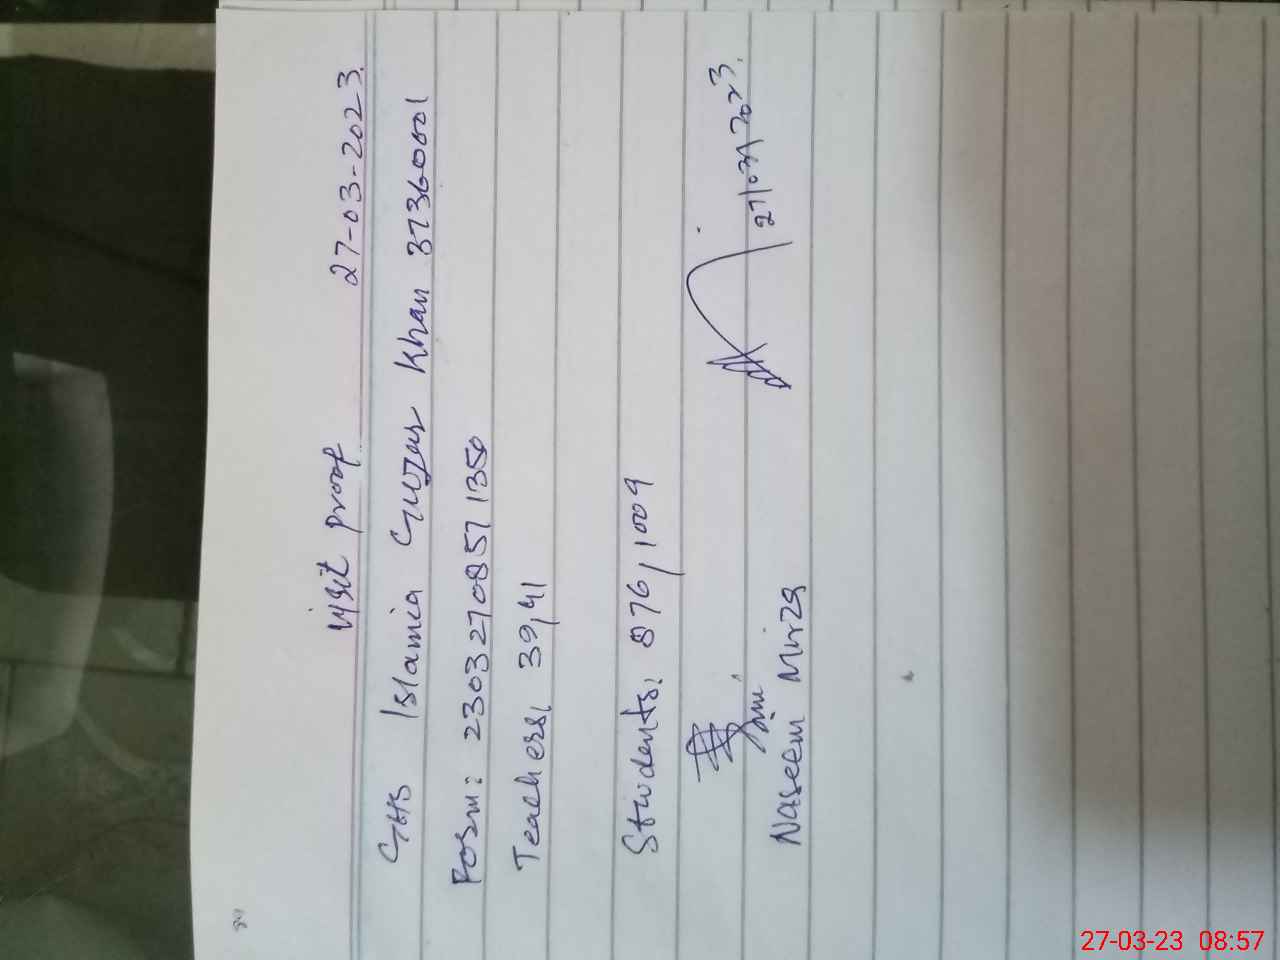 visit proof 27-03-2023
GHS Islamia Gujar Khan 37360001
Form: 2303270857 1350
Teachers: 39/41
Students: 876/1009
27/03/2023
Naseem Mirza
27-03-23 08:57